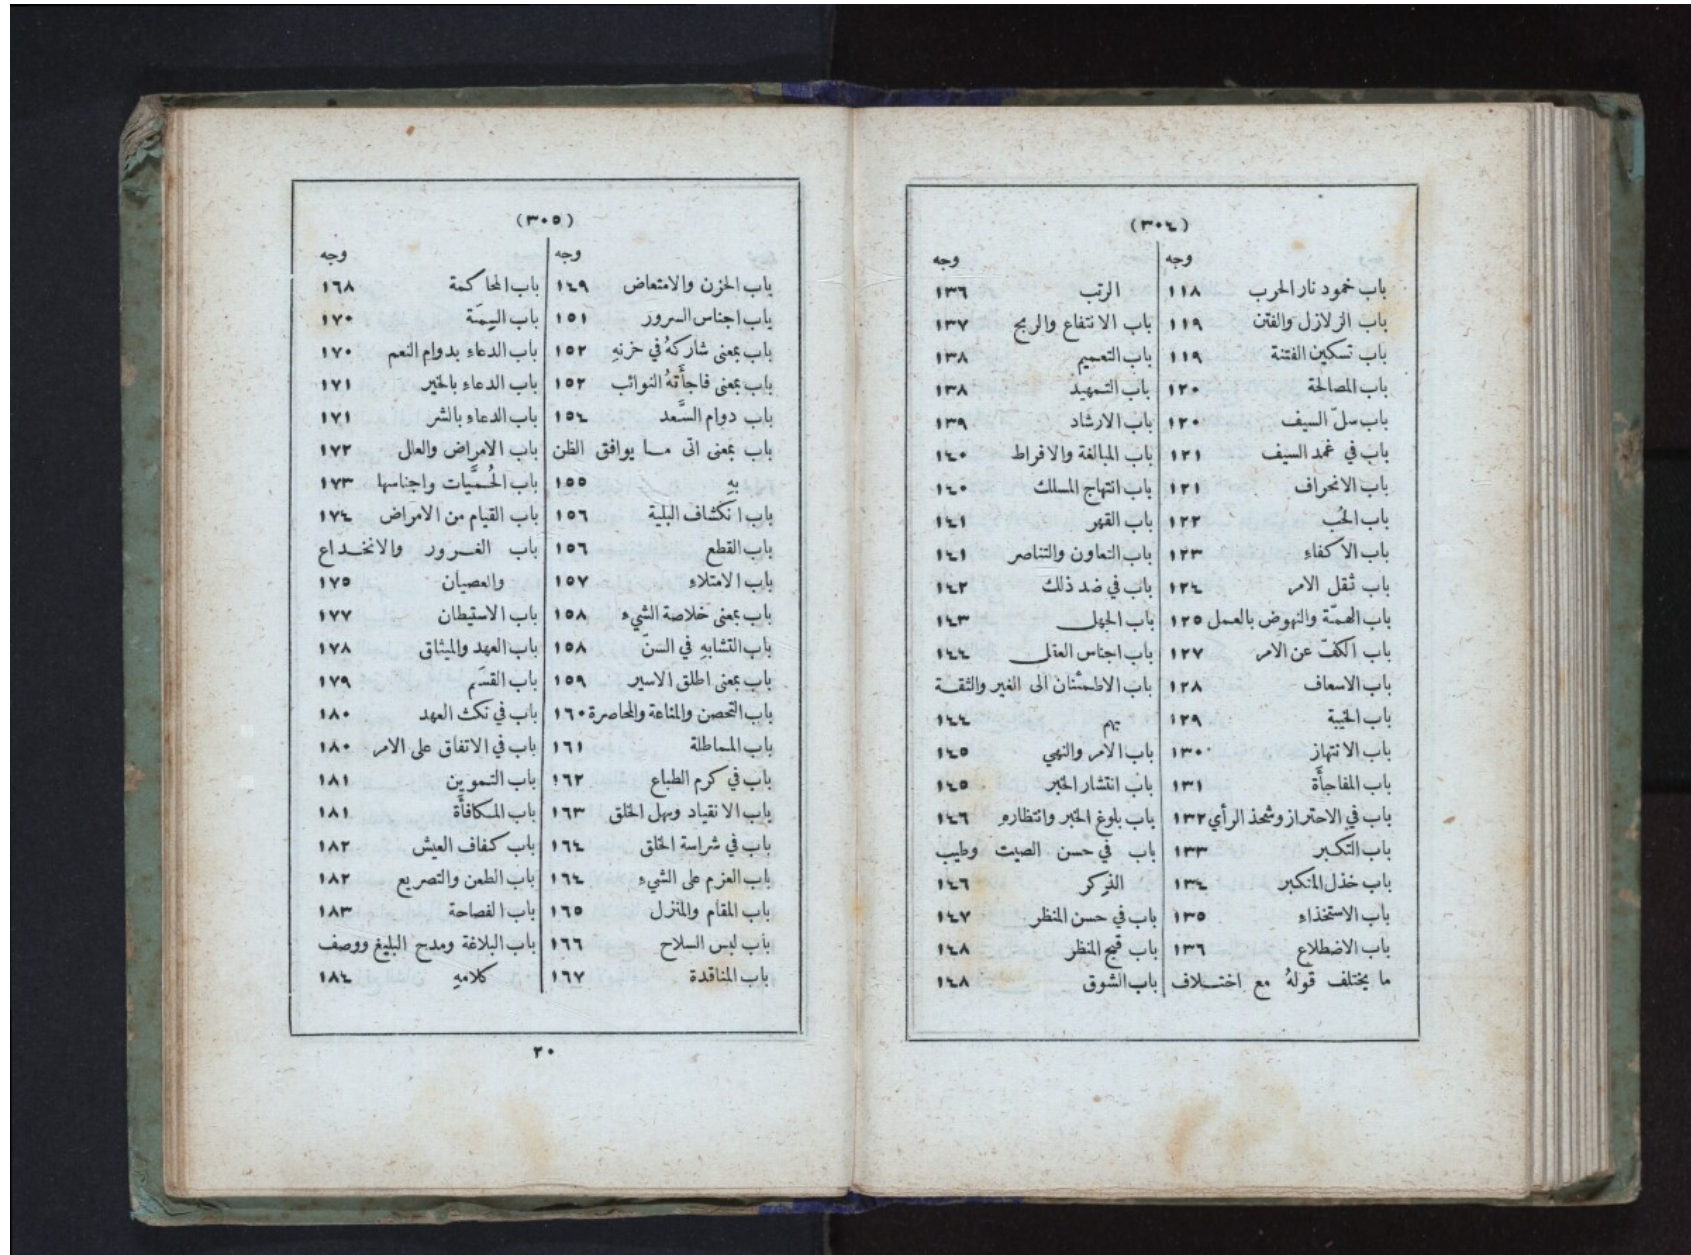 (٣٠٤)
وجه
باب خمود نار الحرب ١١٨
باب الزلازل والفتن ١١٩
باب تسكين الفتنة ١١٩
باب المصالحة ١٢٠
باب سلّ السيف ١٢٠
باب في غمد السيف ١٢١
باب الانحراف ١٢١
باب الحُب ١٢٢
باب الاكفاء ١٢٣
باب ثقل الامر ١٢٤
باب الهمّة والنهوض بالعمل ١٢٥
باب الكفّ عن الامر ١٢٧
باب الاسعاف ١٢٨
باب الخيبة ١٢٩
باب الانتهاز ١٣٠
باب المفاجأَة ١٣١
باب في الاحتراز وشحذ الرأي ١٣٢
باب التكبر ١٣٣
باب خذل المتكبر ١٣٤
باب الاستخذاء ١٣٥
باب الاضطلاع ١٣٦
ما يختلف قولهُ مع اختـلاف
وجه
الرتب ١٣٦
باب الانتفاع والربح ١٣٧
باب التعميم ١٣٨
باب التمهيد ١٣٨
باب الارشاد ١٣٩
باب المبالغة والافراط ١٤٠
باب انتهاج المسلك ١٤٠
باب القهر ١٤١
باب التعاون والتناصر ١٤١
باب في ضد ذلك ١٤٢
باب الجهل ١٤٣
باب اجناس العقل ١٤٤
باب الاطمئنان الى الغير والثقـة
بهم ١٤٤
باب الامر والنهي ١٤٥
باب انتشار الخبر ١٤٥
باب بلوغ الخبر وانتظارهِ ١٤٦
باب في حسن الصيت وطيب
الذكر ١٤٦
باب في حسن المنظر ١٤٧
باب قبح المنظر ١٤٨
باب الشوق ١٤٨
(٣٠٥)
وجه
باب الحزن والامتعاض ١٤٩
باب اجناس السرور ١٥١
باب بمعنى شاركهُ في حزنهِ ١٥٢
باب بمعنى فاجأَتهُ النوائب ١٥٢
باب دوام السَّعد ١٥٤
باب بمعنى اتى مـا يوافق الظن
بهِ ١٥٥
باب انكشاف البلية ١٥٦
باب القطع ١٥٦
باب الامتلاء ١٥٧
باب بمعنى خلاصة الشيء ١٥٨
باب التشابه في السّن ١٥٨
باب بمعنى اطلق الاسير ١٥٩
باب التحصن والمناعة والمحاصرة ١٦٠
باب المماطلة ١٦١
باب في كرم الطباع ١٦٢
باب الانقياد وسهل الخلق ١٦٣
باب في شراسة الخلق ١٦٤
باب العزم على الشيء ١٦٤
باب المقام والمنزل ١٦٥
باب لبس السلاح ١٦٦
باب المناقدة ١٦٧
وجه
باب المحاكمة ١٦٨
باب السِمَة ١٧٠
باب الدعاء بدوام النعم ١٧٠
باب الدعاء بالخير ١٧١
باب الدعاء بالشر ١٧١
باب الامراض والعلل ١٧٢
باب الحُميَّات واجناسها ١٧٣
باب القيام من الامراض ١٧٤
باب الغـرور والانخـداع
والعصيان ١٧٥
باب الاستيطان ١٧٧
باب العهد والميثاق ١٧٨
باب القسَم ١٧٩
باب في نكث العهد ١٨٠
باب في الاتفاق على الامر ١٨٠
باب التموين ١٨١
باب المكافأَة ١٨١
باب كفاف العيش ١٨٢
باب الطعن والتصريع ١٨٢
باب الفصاحة ١٨٣
باب البلاغة ومدح البليغ ووصف
كلامهِ ١٨٤
٢٠